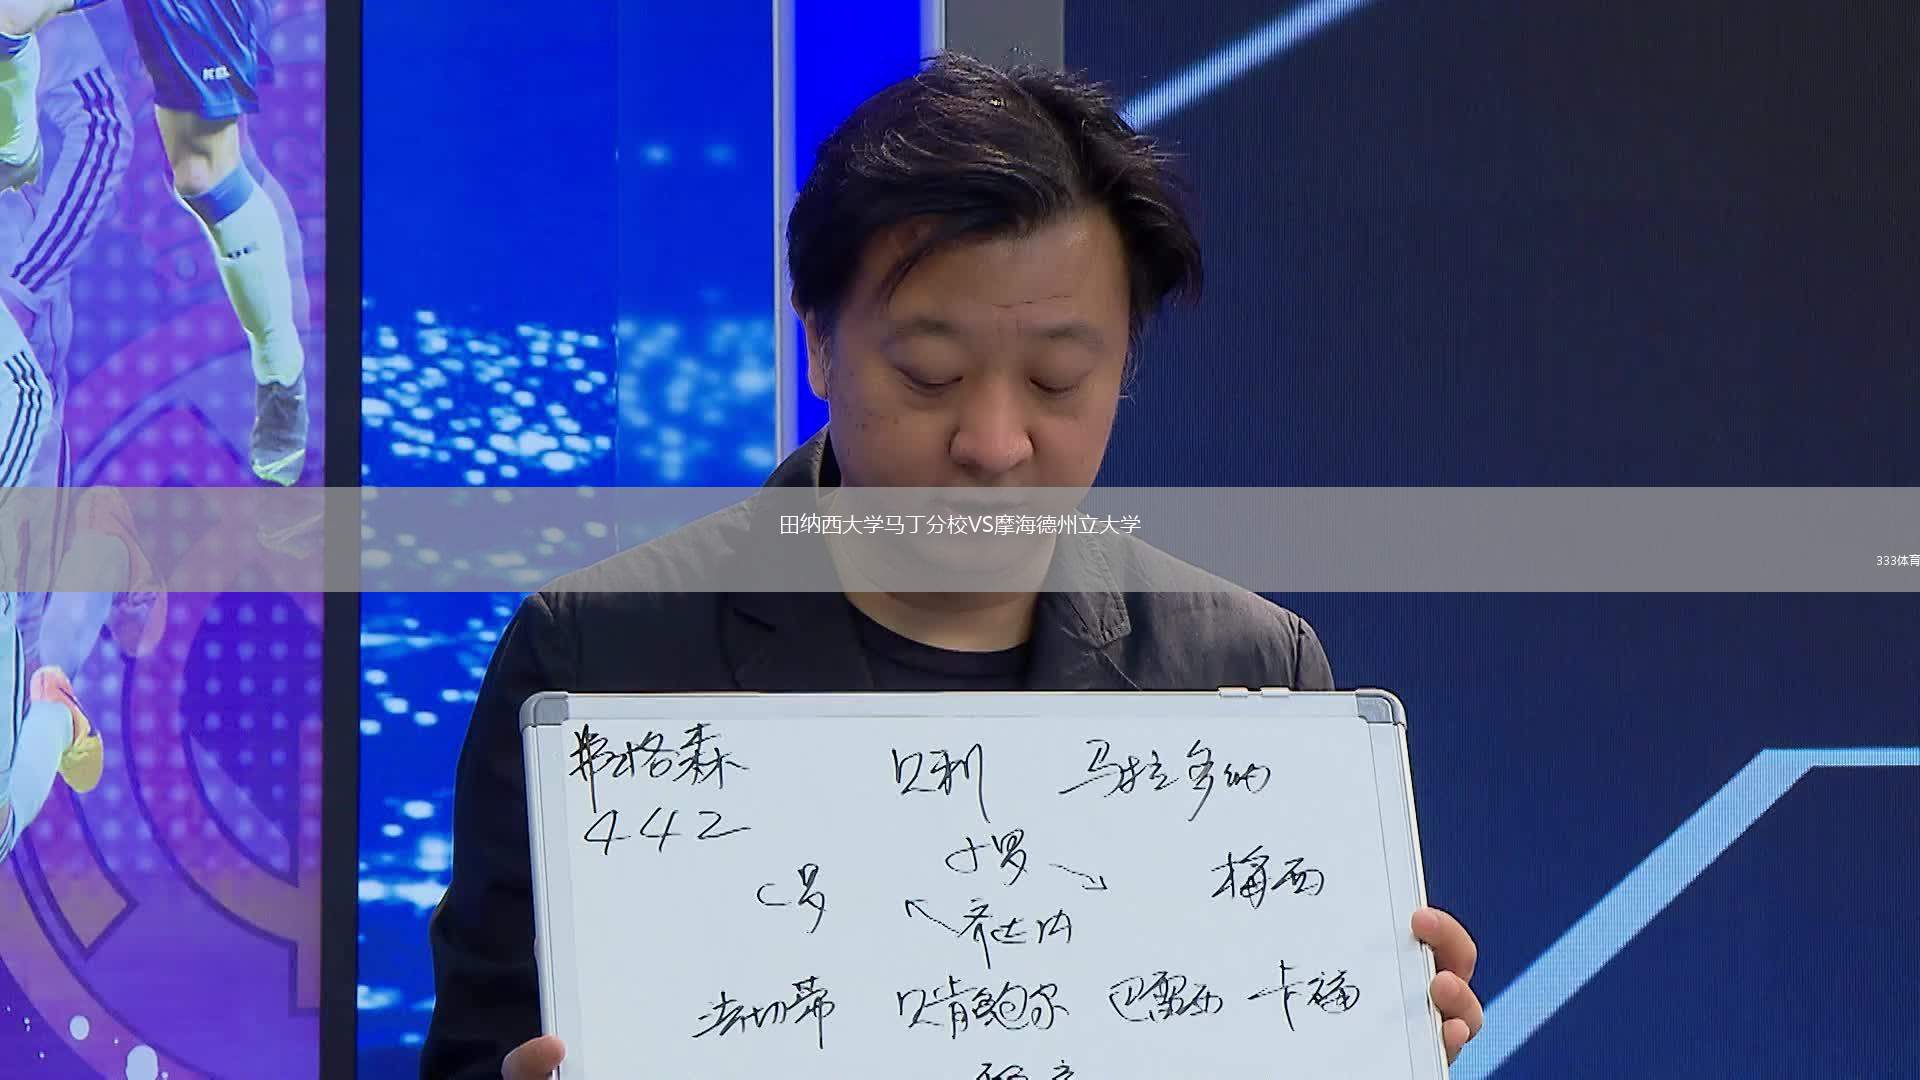 田纳西大学马丁分校VS摩海德州立大学
333体育
弗格森 贝利 马拉多纳
442
小罗
C罗 梅西
齐达内
法切蒂 贝肯鲍尔 巴雷西 卡福